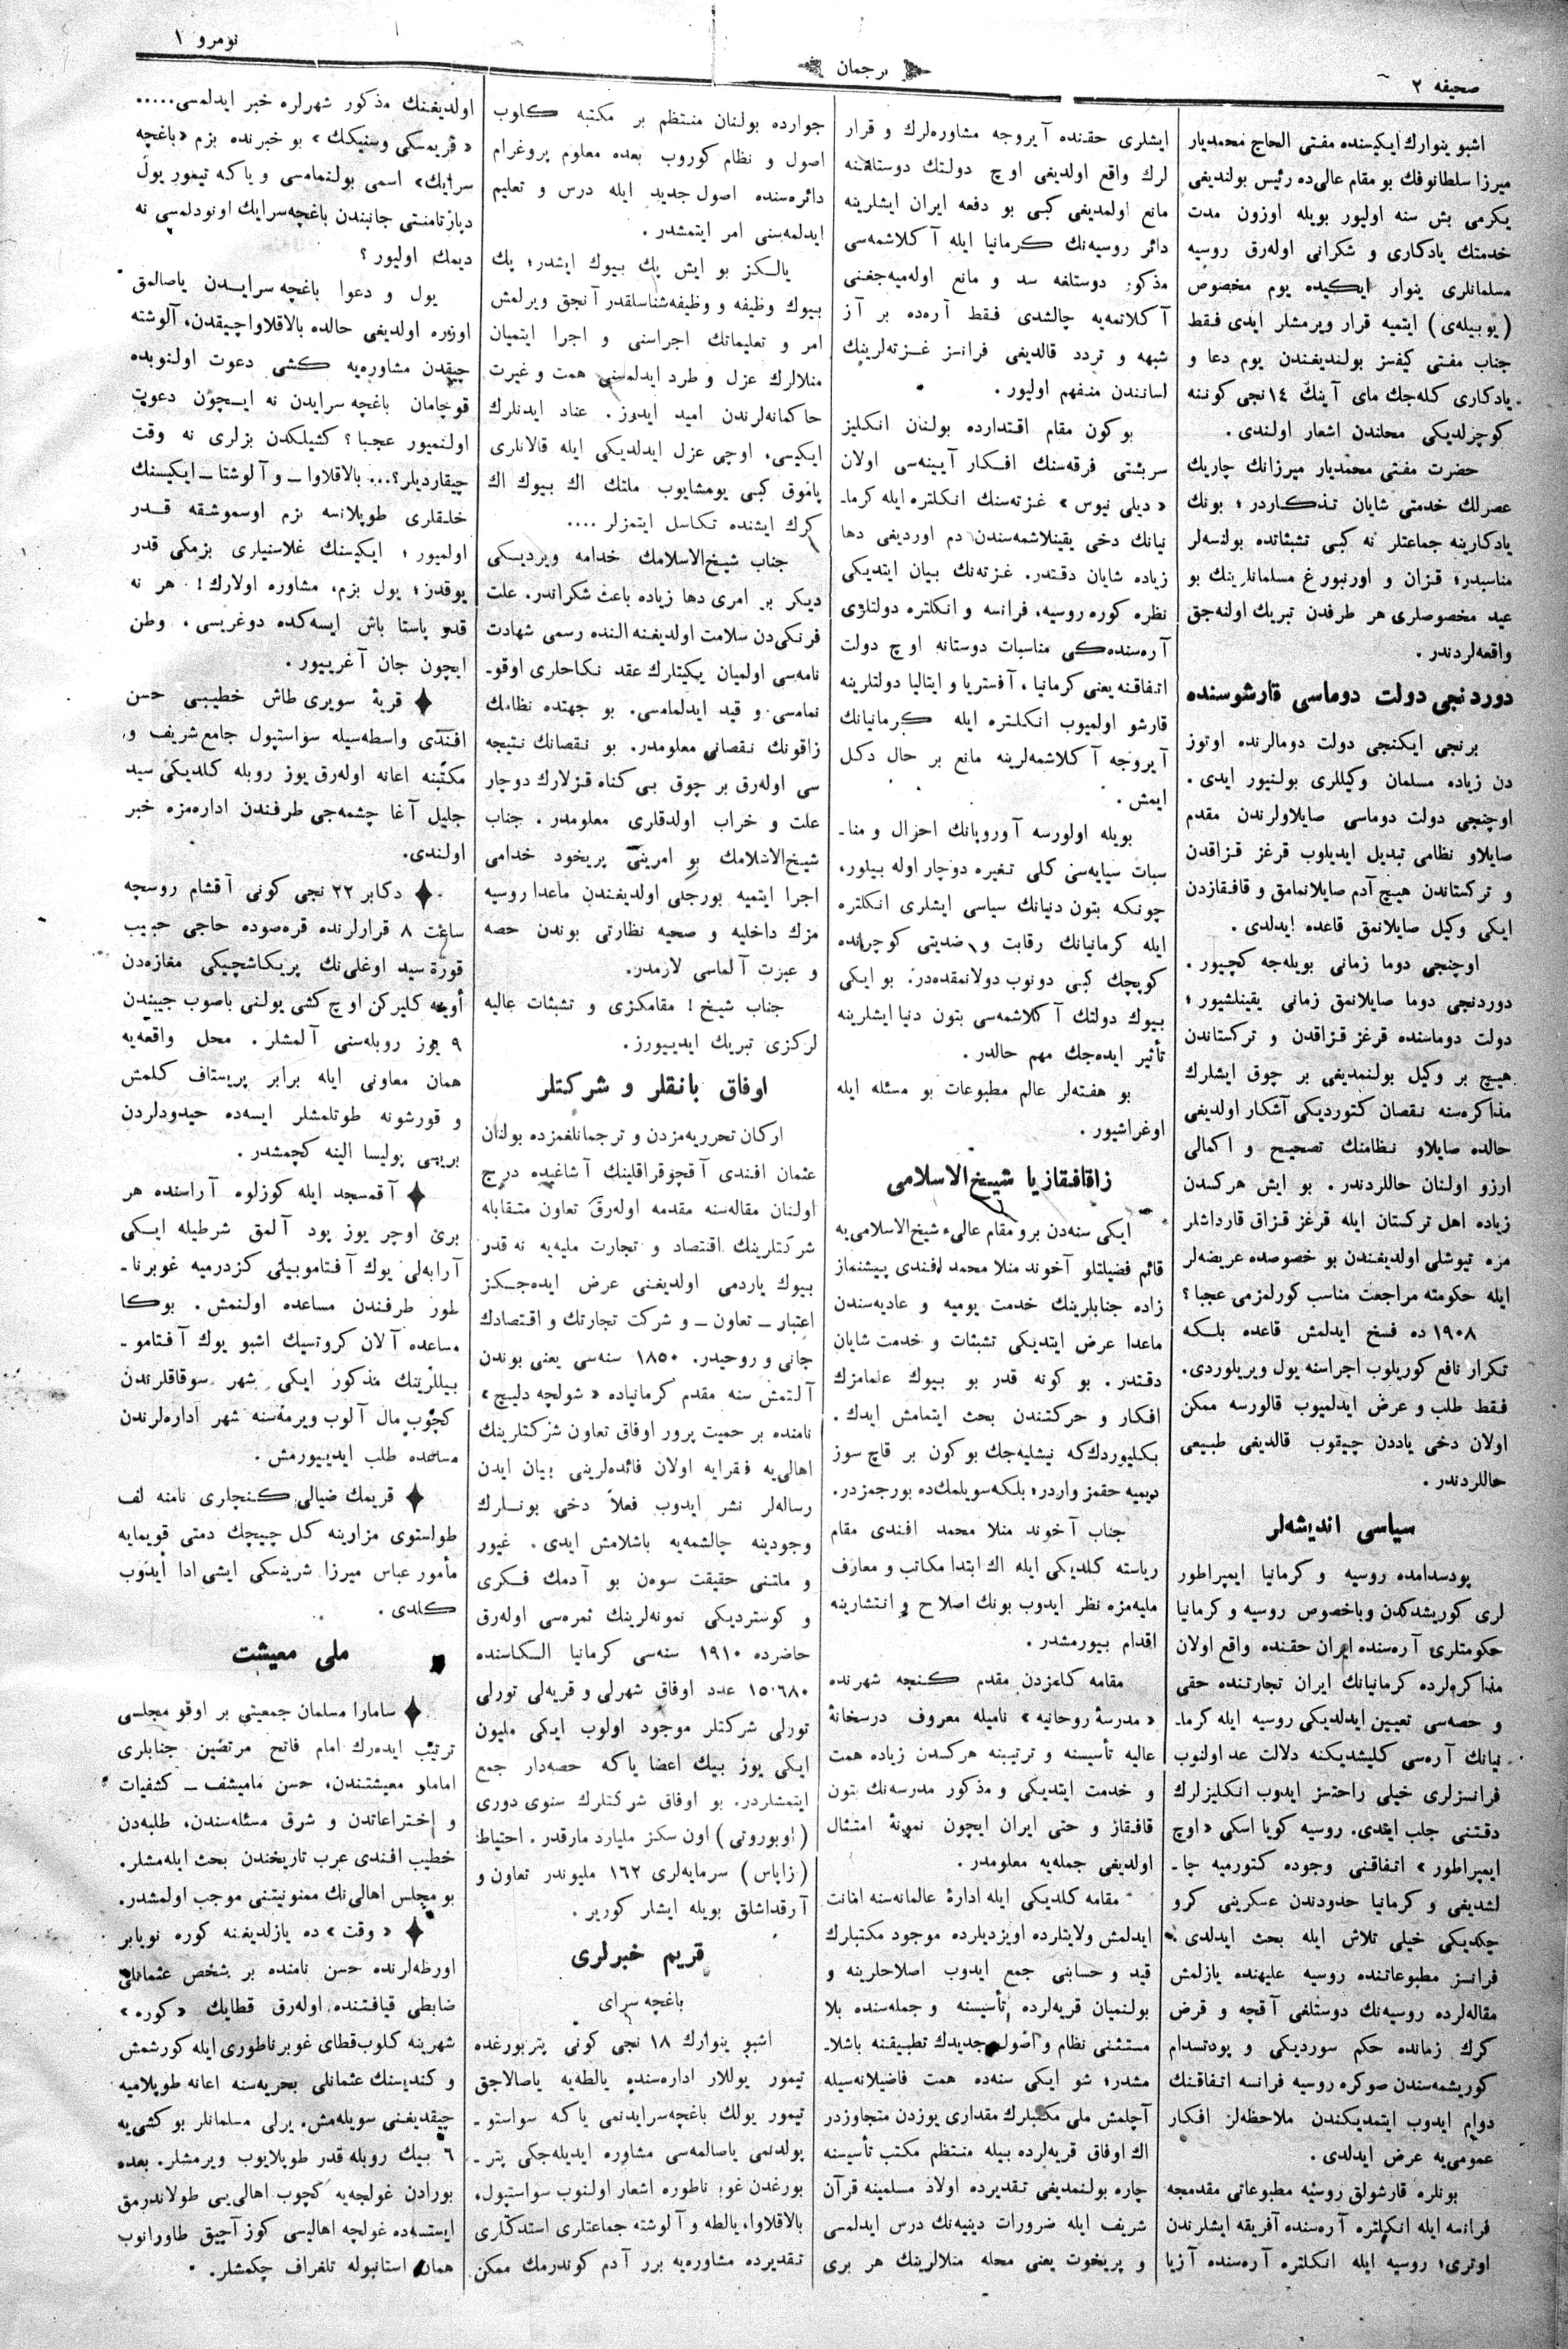 صحیفه ٢
ترجمان
نومرو ١
اشبو ینوارك ایكیسنده مفتی الحاج محمدیار
میرزا سلطانوفك بو مقام عالی‌ده رئیس بولندیغی
یكرمی بش سنه اولیور بویله اوزون مدت
خدمتك یادكاری و شكرانی اوله‌رق روسیه
مسلمانلری ینوار ایكیده یوم مخصوص
(یوبیله‌ی) ایتمیه قرار ویرمشلر ایدی فقط
جناب مفتی كیفسز بولندیغندن یوم دعا و
یادكاری كله‌جك مای آینك ١٤نجی كوننه
كوچرلدیكی محلندن اشعار اولندی.
حضرت مفتی محمدیار میرزانك چاریك
عصرلك خدمتی شایان تذكاردر؛ بونك
یادكارینه جماعتلر نه كبی تشبثاتده بولنسه‌لر
مناسبدر؛ قزان و اورنبورغ مسلمانلرینك بو
عید مخصوصلری هر طرفدن تبریك اولنه‌جق
واقعه‌لردندر.
دوردنجی دولت دوماسی قارشوسنده
برنجی ایكنجی دولت دومالرنده اوتوز
دن زیاده مسلمان وكیللری بولنیور ایدی.
اوچنجی دولت دوماسی صایلاولرندن مقدم
صایلاو نظامی تبدیل ایدیلوب قرغز قزاقدن
و تركستاندن هیچ آدم صایلانمامق و قافقازدن
ایكی وكیل صایلانمق قاعده ایدلدی.
اوچنجی دوما زمانی بویله‌جه كچیور.
دوردنجی دوما صایلانمق زمانی یقینلشیور؛
دولت دوماسنده قرغز قزاقدن و تركستاندن
هیچ بر وكیل بولنمدیغی بر چوق ایشلرك
مذاكره‌سنه نقصان كتوردیكی آشكار اولدیغی
حالده صایلاو نظامنك تصحیح و اكمالی
ارزو اولنان حاللردندر. بو ایش هركسدن
زیاده اهل تركستان ایله قرغز قزاق قارداشلر
مزه تیوشلی اولدیغندن بو خصوصده عریضه‌لر
ایله حكومته مراجعت مناسب كورلمزمی عجبا؟
١٩٠٨ ده فسخ ایدلمش قاعده بلكه
تكرار نافع كوریلوب اجراسنه یول ویریلوردی.
فقط طلب و عرض ایدلمیوب قالورسه ممكن
اولان دخی یاددن چیقوب قالدیغی طبیعی
حاللردندر.
سیاسی اندیشه‌لر
پودسدامده روسیه و كرمانیا ایمپراطور
لری كوریشدكدن وباخصوص روسیه و كرمانیا
حكومتلری آره‌سنده ایران حقنده واقع اولان
مذاكره‌لرده كرمانیانك ایران تجارتنده حقی
و حصه‌سی تعیین ایدلدیكی روسیه ایله كرما‌ـ
نیانك آره‌سی كلیشدیكنه دلالت عد اولنوب
فرانسزلری خیلی راحتسز ایدوب انكلیزلرك
دقتنی جلب ایتدی. روسیه كویا اسكی «اوچ
ایمپراطور» اتفاقنی وجوده كتورمیه چا‌ـ
لشدیغی و كرمانیا حدودندن عسكرینی كرو
چكدیكی خیلی تلاش ایله بحث ایدلدی.
فرانسز مطبوعاتنده روسیه علیهنده یازلمش
مقاله‌لرده روسیه‌نك دوستلغی آقچه و قرض
كرك زمانده حكم سوردیكی و پودتسدام
كوریشمه‌سندن صوكره روسیه فرانسه اتفاقنك
دوام ایدوب ایتمدیكندن ملاحظه‌لر افكار
عمومی‌یه عرض ایدلدی.
بونلره قارشولق روسیه مطبوعاتی مقدمجه
فرانسه ایله انكلتره آره‌سنده آفریقه ایشلرندن
اوتری؛ روسیه ایله انكلتره آره‌سنده آزیا
ایشلری حقنده آیروجه مشاوره‌لرك و قرار
لرك واقع اولدیغی اوچ دولتك دوستلغنه
مانع اولمدیغی كبی بو دفعه ایران ایشلرینه
دائر روسیه‌نك كرمانیا ایله آكلاشمه‌سی
مذكور دوستلغه سد و مانع اوله‌میه‌جغنی
آكلاتمه‌یه چالشدی فقط آره‌ده بر آز
شبهه و تردد قالدیغی فرانسز غزته‌لرینك
لسانندن منفهم اولیور.
بوكون مقام اقتدارده بولنان انكلیز
سربشتی فرقه‌سنك افكار آیینه‌سی اولان
«دیلی نیوس» غزته‌سنك انكلتره ایله كرما‌ـ
نیانك دخی یقینلاشمه‌سندن دم اوردیغی دها
زیاده شایان دقتدر. غزته‌نك بیان ایتدیكی
نظره كوره روسیه، فرانسه و انكلتره دولتلری
آره‌سنده‌كی مناسبات دوستانه اوچ دولت
اتفاقنه یعنی كرمانیا، آفستریا و ایتالیا دولتلرینه
قارشو اولمیوب انكلتره ایله كرمانیانك
آیروجه آكلاشمه‌لرینه مانع بر حال دكل
ایمش.
بویله اولورسه آوروپانك احوال و منا‌ـ
سبات سیایه‌سی كلی تغیره دوچار اوله بیلور،
چونكه بتون دنیانك سیاسی ایشلری انكلتره
ایله كرمانیانك رقابت و ضدیتی كوچرانده
كوپچك كبی دونوب دولانمقده‌در. بو ایكی
بیوك دولتك آكلاشمه‌سی بتون دنیا ایشلرینه
تأثیر ایده‌جك مهم حالدر.
بو هفته‌لر عالم مطبوعات بو مسئله ایله
اوغراشیور.
زاقافقازیا شیخ‌الاسلامی
ایكی سنه‌دن برو مقام عالیء شیخ‌الاسلامی‌یه
قائم فضیلتلو آخوند منلا محمد افندی پیشنماز
زاده جنابلرینك خدمت یومیه و عادیه‌سندن
ماعدا عرض ایتدیكی تشبثات و خدمت شایان
دقتدر. بو كونه قدر بو بیوك علمامزك
افكار و حركتندن بحث ایتمامش ایدك.
بكلیوردك‌كه نیشلیه‌جك بو كون بر قاچ سوز
دیمیه حقمز واردر؛ بلكه سویلمك‌ده بورجمزدر.
جناب آخوند منلا محمد افندی مقام
ریاسته كلدیكی ایله اك ابتدا مكاتب و معارف
ملیه‌مزه نظر ایدوب بونك اصلاح و انتشارینه
اقدام بیورمشدر.
مقامه كلمزدن مقدم كنجه شهرنده
«مدرسۀ روحانیه» نامیله معروف درسخانۀ
عالیه تأسیسنه و ترتیبنه هركسدن زیاده همت
و خدمت ایتدیكی و مذكور مدرسه‌نك بتون
قافقاز و حتی ایران ایچون نمونۀ امتثال
اولدیغی جمله‌یه معلومدر.
مقامه كلدیكی ایله ادارۀ عالمانه‌سنه امانت
ایدلمش ولایتلرده اویزدیلرده موجود مكتبلرك
قید و حسابنی جمع ایدوب اصلاحلرینه و
بولنمیان قریه‌لرده تأسیسنه و جمله‌سنده بلا
مستثنی نظام و اصول جدیدك تطبیقنه باشلا‌ـ
مشدر؛ شو ایكی سنه‌ده همت فاضیلانه‌سیله
آچلمش ملی مكتبلرك مقداری یوزدن متجاوزدر
اك اوفاق قریه‌لرده بیله منتظم مكتب تأسیسنه
چاره بولنمدیغی تقدیرده اولاد مسلمینه قرآن
شریف ایله ضرورات دینیه‌نك درس ایدلمسی
و پریخوت یعنی محله منلالرینك هر بری
جوارده بولنان منتظم بر مكتبه كلوب
اصول و نظام كوروب بعده معلوم پروغرام
دائره‌سنده اصول جدید ایله درس و تعلیم
ایدلمه‌سنی امر ایتمشدر.
یالكز بو ایش پك بیوك ایشدر؛ پك
بیوك وظیفه و وظیفه‌شناسلقدر آنجق ویرلمش
امر و تعلیماتك اجراسنی و اجرا ایتمیان
منلالرك عزل و طرد ایدلمسنی همت و غیرت
حاكمانه‌لرندن امید ایدرز. عناد ایدنلرك
ایكیسی، اوچی عزل ایدلدیكی ایله قالانلری
پاموق كبی یومشایوب ملتك اك بیوك اك
كرك ایشنده تكاسل ایتمزلر....
جناب شیخ‌الاسلامك خدامه ویردیكی
دیكر بر امری دها زیاده باعث شكراندر. علت
فرنكی‌دن سلامت اولدیغنه النده رسمی شهادت
نامه‌سی اولمیان یكیتلرك عقد نكاحلری اوقو‌ـ
نمامسی و قید ایدلمامسی. بو جهتده نظامك
زاقونك نقصانی معلومدر. بو نقصانك نتیجه
سی اوله‌رق بر چوق بی كناه قزلارك دوچار
علت و خراب اولدقاری معلومدر. جناب
شیخ‌الاسلامك بو امرینی پریخود خدامی
اجرا ایتمیه بورجلی اولدیغندن ماعدا روسیه
مزك داخلیه و صحیه نظارتی بوندن حصه
و عبرت آلماسی لازمدر.
جناب شیخ! مقامكزی و تشبثات عالیه
لركزی تبریك ایدییورز.
اوفاق بانقلر و شركتلر
اركان تحرریه‌مزدن و ترجمانلغمزده بولنان
عثمان افندی آقچوقراقلینك آشاغیده درج
اولنان مقاله‌سنه مقدمه اوله‌رق تعاون متقابله
شركتلرینك اقتصاد و تجارت ملیه‌یه نه قدر
بیوك یاردمی اولدیغنی عرض ایده‌جكز
اعتبار ـ تعاون ـ و شركت تجارتك و اقتصادك
جانی و روحیدر. ١٨٥٠ سنه‌سی یعنی بوندن
آلتمش سنه مقدم كرمانیاده «شولچه دلیچ»
نامنده بر حمیت پرور اوفاق تعاون شركتلرینك
اهالی‌یه فقرایه اولان فائده‌لرینی بیان ایدن
رساله‌لر نشر ایدوب فعلاً دخی بونلرك
وجودینه چالشمه‌یه باشلامش ایدی. غیور
و ملتنی حقیقت سوه‌ن بو آدمك فكری
و كوستردیكی نمونه‌لرینك ثمره‌سی اوله‌رق
حاضرده ١٩١٠ سنه‌سی كرمانیا الكاسنده
١٥٠٦٨٠ عدد اوفاق شهرلی و قریه‌لی تورلی
تورلی شركتلر موجود اولوب ایكی ملیون
ایكی یوز بیك اعضا یاكه حصه‌دار جمع
ایتمشلردر. بو اوفاق شركتلرك سنوی دوری
(اوبوروتی) اون سكز ملیارد مارقدر. احتیاط
(زاپاس) سرمایه‌لری ١٦٢ ملیوندر تعاون و
آرقداشلق بویله ایشلر كوریر.
قریم خبرلری
باغچه سرای
اشبو ینوارك ١٨ نجی كونی پتربورغده
تیمور یوللار اداره‌سنده یالطه‌یه یاصالاجق
تیمور یولك باغچه‌سرایدنمی یاكه سواستو‌ـ
پولدنمی یاصالمه‌سی مشاوره ایدیله‌جكی پتر‌ـ
بورغدن غوبرناطوره اشعار اولنوب سواستپول،
بالاقلاوا، یالطه و آلوشته جماعتلری استدكلری
تقدیرده مشاوره‌یه برر آدم كوندرمك ممكن
اولدیغنك مذكور شهرلره خبر ایدلمسی.....
«قریمسكی وستنیكك» بو خبرنده بزم «باغچه
سرایك» اسمی بولنمامسی و یا كه تیمور یول
دپارتامنتی جانبندن باغچه‌سرایك اونودلمسی نه
دیمك اولیور؟
یول و دعوا باغچه سرایدن یاصالمق
اوزره اولدیغی حالده بالاقلاواچیقدن، آلوشته
چیقدن مشاوره‌یه كشی دعوت اولنوبده
قوجامان باغچه سرایدن نه ایچون دعوت
اولنمیور عجبا؟ كشیلكدن بزلری نه وقت
چیقاردیلر؟... بالاقلاوا ـ و آلوشتا ـ ایكیسنك
خلقلری طوپلانسه بزم اوسموشقه قدر
اولمیور؛ ایكیسنك غلاسنیلری بزمكی قدر
یوقدر؛ یول بزم، مشاوره اولارك! هر نه
قدر پاستا باش ایسه‌كده دوغریسی. وطن
ایچون جان آغرییور.
قریۀ سویری طاش خطیبی حسن
افندی واسطه‌سیله سواستپول جامع شریف و
مكتبنه اعانه اوله‌رق یوز روبله كلدیكی سید
جلیل آغا چشمه‌جی طرفندن اداره‌مزه خبر
اولندی.
دكابر ٢٢ نجی كونی آقشام روسچه
ساعت ٨ قرارلرنده قره‌صوده حاجی حبیب
قورة سید اوغلی‌نك پریكاشچیكی مغازه‌دن
أویه كلیركن اوچ كشی یولنی باصوب جیبندن
٩ یوز روبله‌سنی آلمشلر. محل واقعه‌یه
همان معاونی ایله برابر پریستاف كلمش
و قورشونه طوتلمشلر ایسه‌ده حیدودلردن
بریسی پولیسا الینه كچمشدر.
آقمسجد ایله كوزلوه آراسنده هر
بری اوچر یوز پود آلمق شرطیله ایكی
آرابه‌لی یوك آفتاموبیلی كزدرمیه غوبرنا‌ـ
طور طرفندن مساعده اولنمش. بوكا
مساعده آلان كروتسیك اشبو یوك آفتامو‌ـ
بیللرینك مذكور ایكی شهر سوقاقلرندن
كچوب مال آلوب ویرمه‌سنه شهر اداره‌لرندن
مساعده طلب ایدییورمش.
قریمك ضیالی كنجلری نامنه لف
طولستوی مزارینه كل چیچك دمتی قویمایه
مأمور عباس میرزا شرینسكی ایشی ادا ایدوب
كلدی.
ملی معیشت
سامارا مسلمان جمعیتی بر اوقو مجلسی
ترتیب ایده‌رك امام فاتح مرتضین جنابلری
اماملو معیشتندن، حسن مامیشف ـ كشفیات
و اختراعاتدن و شرق مسئله‌سندن، طلبه‌دن
خطیب افندی عرب تاریخندن بحث ایله‌مشلر.
بو مجلس اهالی‌نك ممنونیتنی موجب اولمشدر.
«وقت» ده یازلدیغنه كوره نویابر
اورطه‌لرنده حسن نامنده بر شخص عثمانلی
ضابطی قیافتنده اوله‌رق قطایك «كوره»
شهرینه كلوب قطای غوبرناطوری ایله كورشمش
و كندیسنك عثمانلی بحریه‌سنه اعانه طوپلامیه
چیقدیغنی سویله‌مش. یرلی مسلمانلر بو كشی‌یه
٦ بیك روبله قدر طوپلایوب ویرمشلر. بعده
بورادن غولجه‌یه كچوب اهالی‌یی طولاندرمق
ایستسه‌ده غولجه اهالیسی كوز آچیق طاورانوب
همان استانبوله تلغراف چكمشلر.